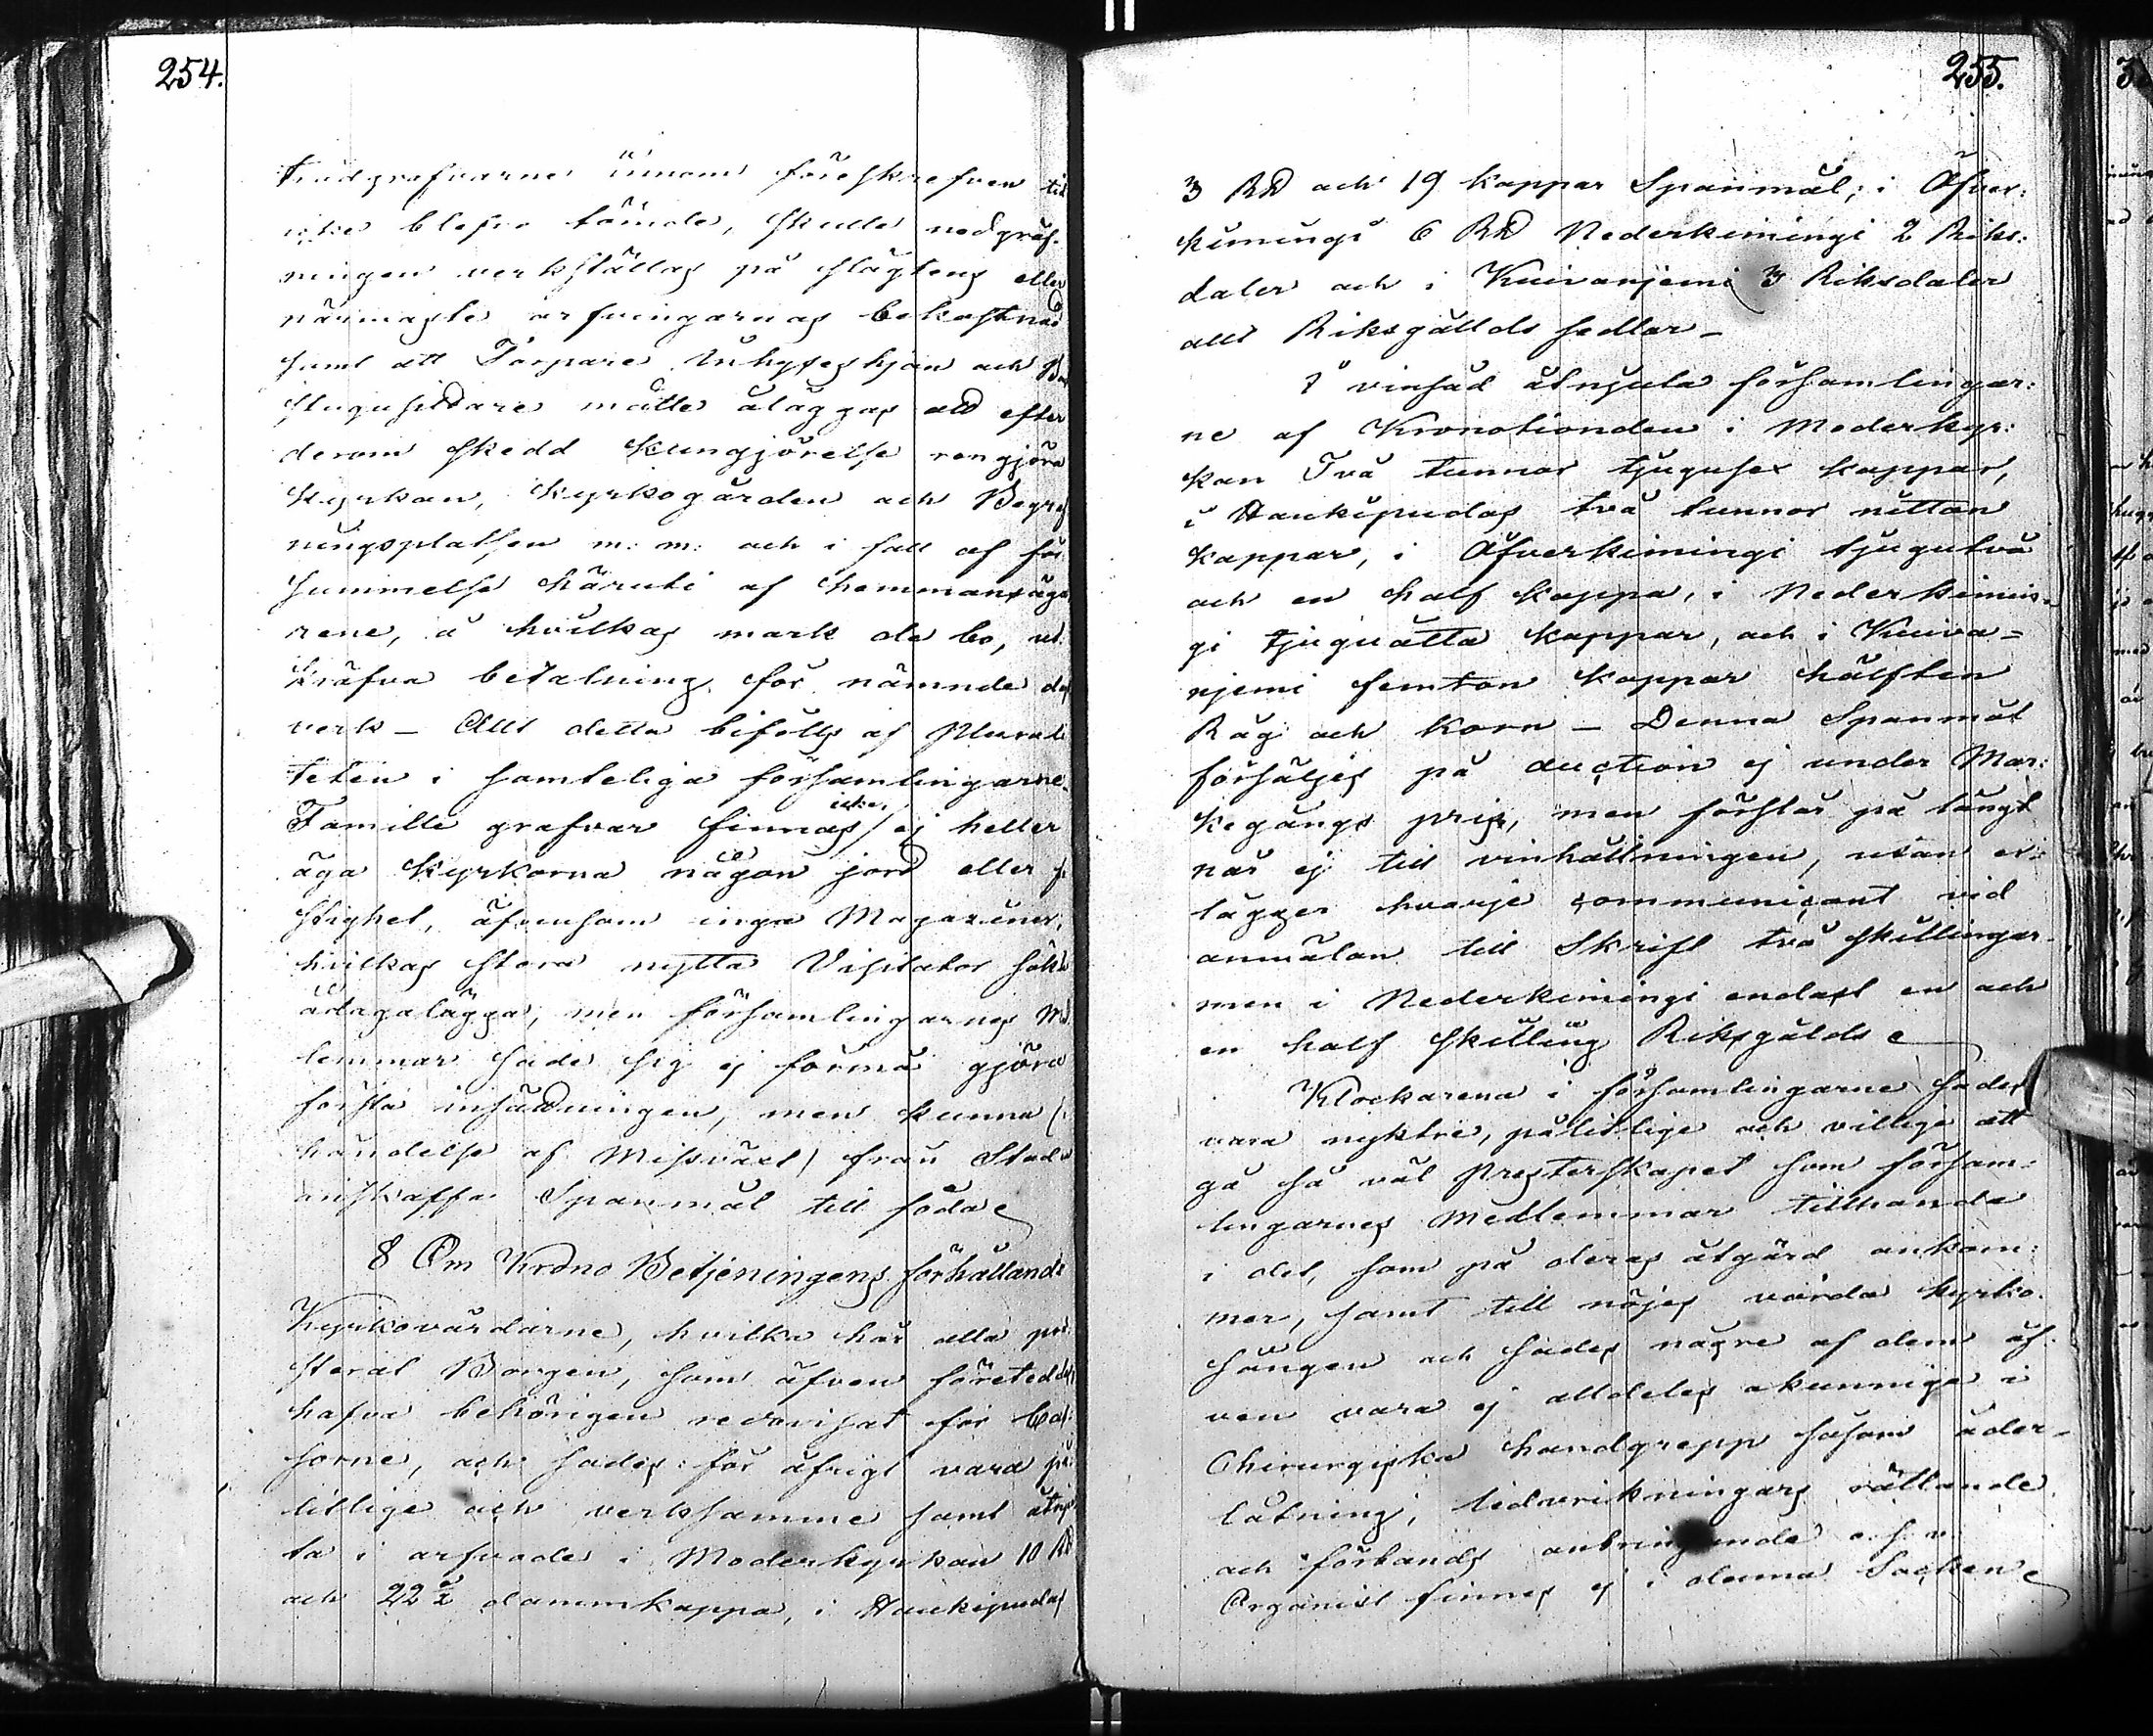 254.
grafvarne innom föreskrefven tid
icke blefvo tömde, skulle nedgräf-
ningen verkställas på slägtens eller
närmaste arfvingarnas bekostnad
samt att Torpare Inhyseshjon och
stugusittare måtte åläggas att efter
derom skedd kungjörelse rengjöra
kyrkan, kyrkogården och Begraf
ningsplatsen m: m: och i fall af för-
summelse häruti af hemmansäga
rene, å hvilkas mark de bo, ut
kräfva betalning för nämnde dags
verk – Allt detta bifölls af Plurali
teten i samteliga församlingarne.
Famille grafvar finnas icke, ej heller
äga kyrkorna någon jord eller f
stighet, äfvensom inga Magaziner,
hvilkas stora nytta Visitator sökte
ådagalägga, men församlingarnes Med
lemmar sade sig ej förmå gjöra
första insättningen, men kunna (i
händelse af Missväxt) från Stade
anskaffa Spanmål till föda
8 Om Krono Betjeningens förhållande
Kyrkovärdarne, hvilka här alla pre
sterat Borgen, som äfven företeddes
hafva behörigen redovisat för Cas-
sorne, och sades för öfrigt vara på
litlige och verksamme samt åtnju
ta i arfvode i Moderkyrkan 10 RD
och 22 ½ dammkappa, i Haukipudas
255.
3 RD och 19 kappar Spanmål; i Öfver:
kimingi 6 RD Nederkimingi 2 Riks:
daler och i Kuivanjemi 3 Riksdaler
allt Riksgällds sedlar –
I vinsäd åtnjuta församlingar:
ne af Kronotionden i Moderkyr:
kan Två tunnor tjugusex kappar,
i Haukipudas två tunnor nittan
kappar, i Öfverkimingi tjugutvå
och en half kappa, i Nederkimin-
gi tjuguåtta kappar, och i Kuiva-
njemi femton kappar hälften
Råg och Korn – Denna Spanmål
försäljes på auction ej under Mar:
kegångs pris, men förslår på långt
när ej till vinhållningen, utan er:
lägger hvarje communicant vid
anmälan till Skrift två skillingar
men i Nederkimingi endast en och
en half skilling Riksgälds
Klockarena i församlingarne sades
vara nyktre, pålitlige och villige att
gå så väl Presterskapet som försam-
lingarnes Medlemmar tillhanda
i det, som på deras åtgärd ankom:
mer, samt till nöjes vårda kyrko-
sången och sades någre af dem äf
ven vara ej alldeles okunnige i
Chirurgiska handgrepp såsom åder-
låtning, ledvrikningars rättande
och förbands anbringande o. s. v.
Organist finnes ej i denna Socken